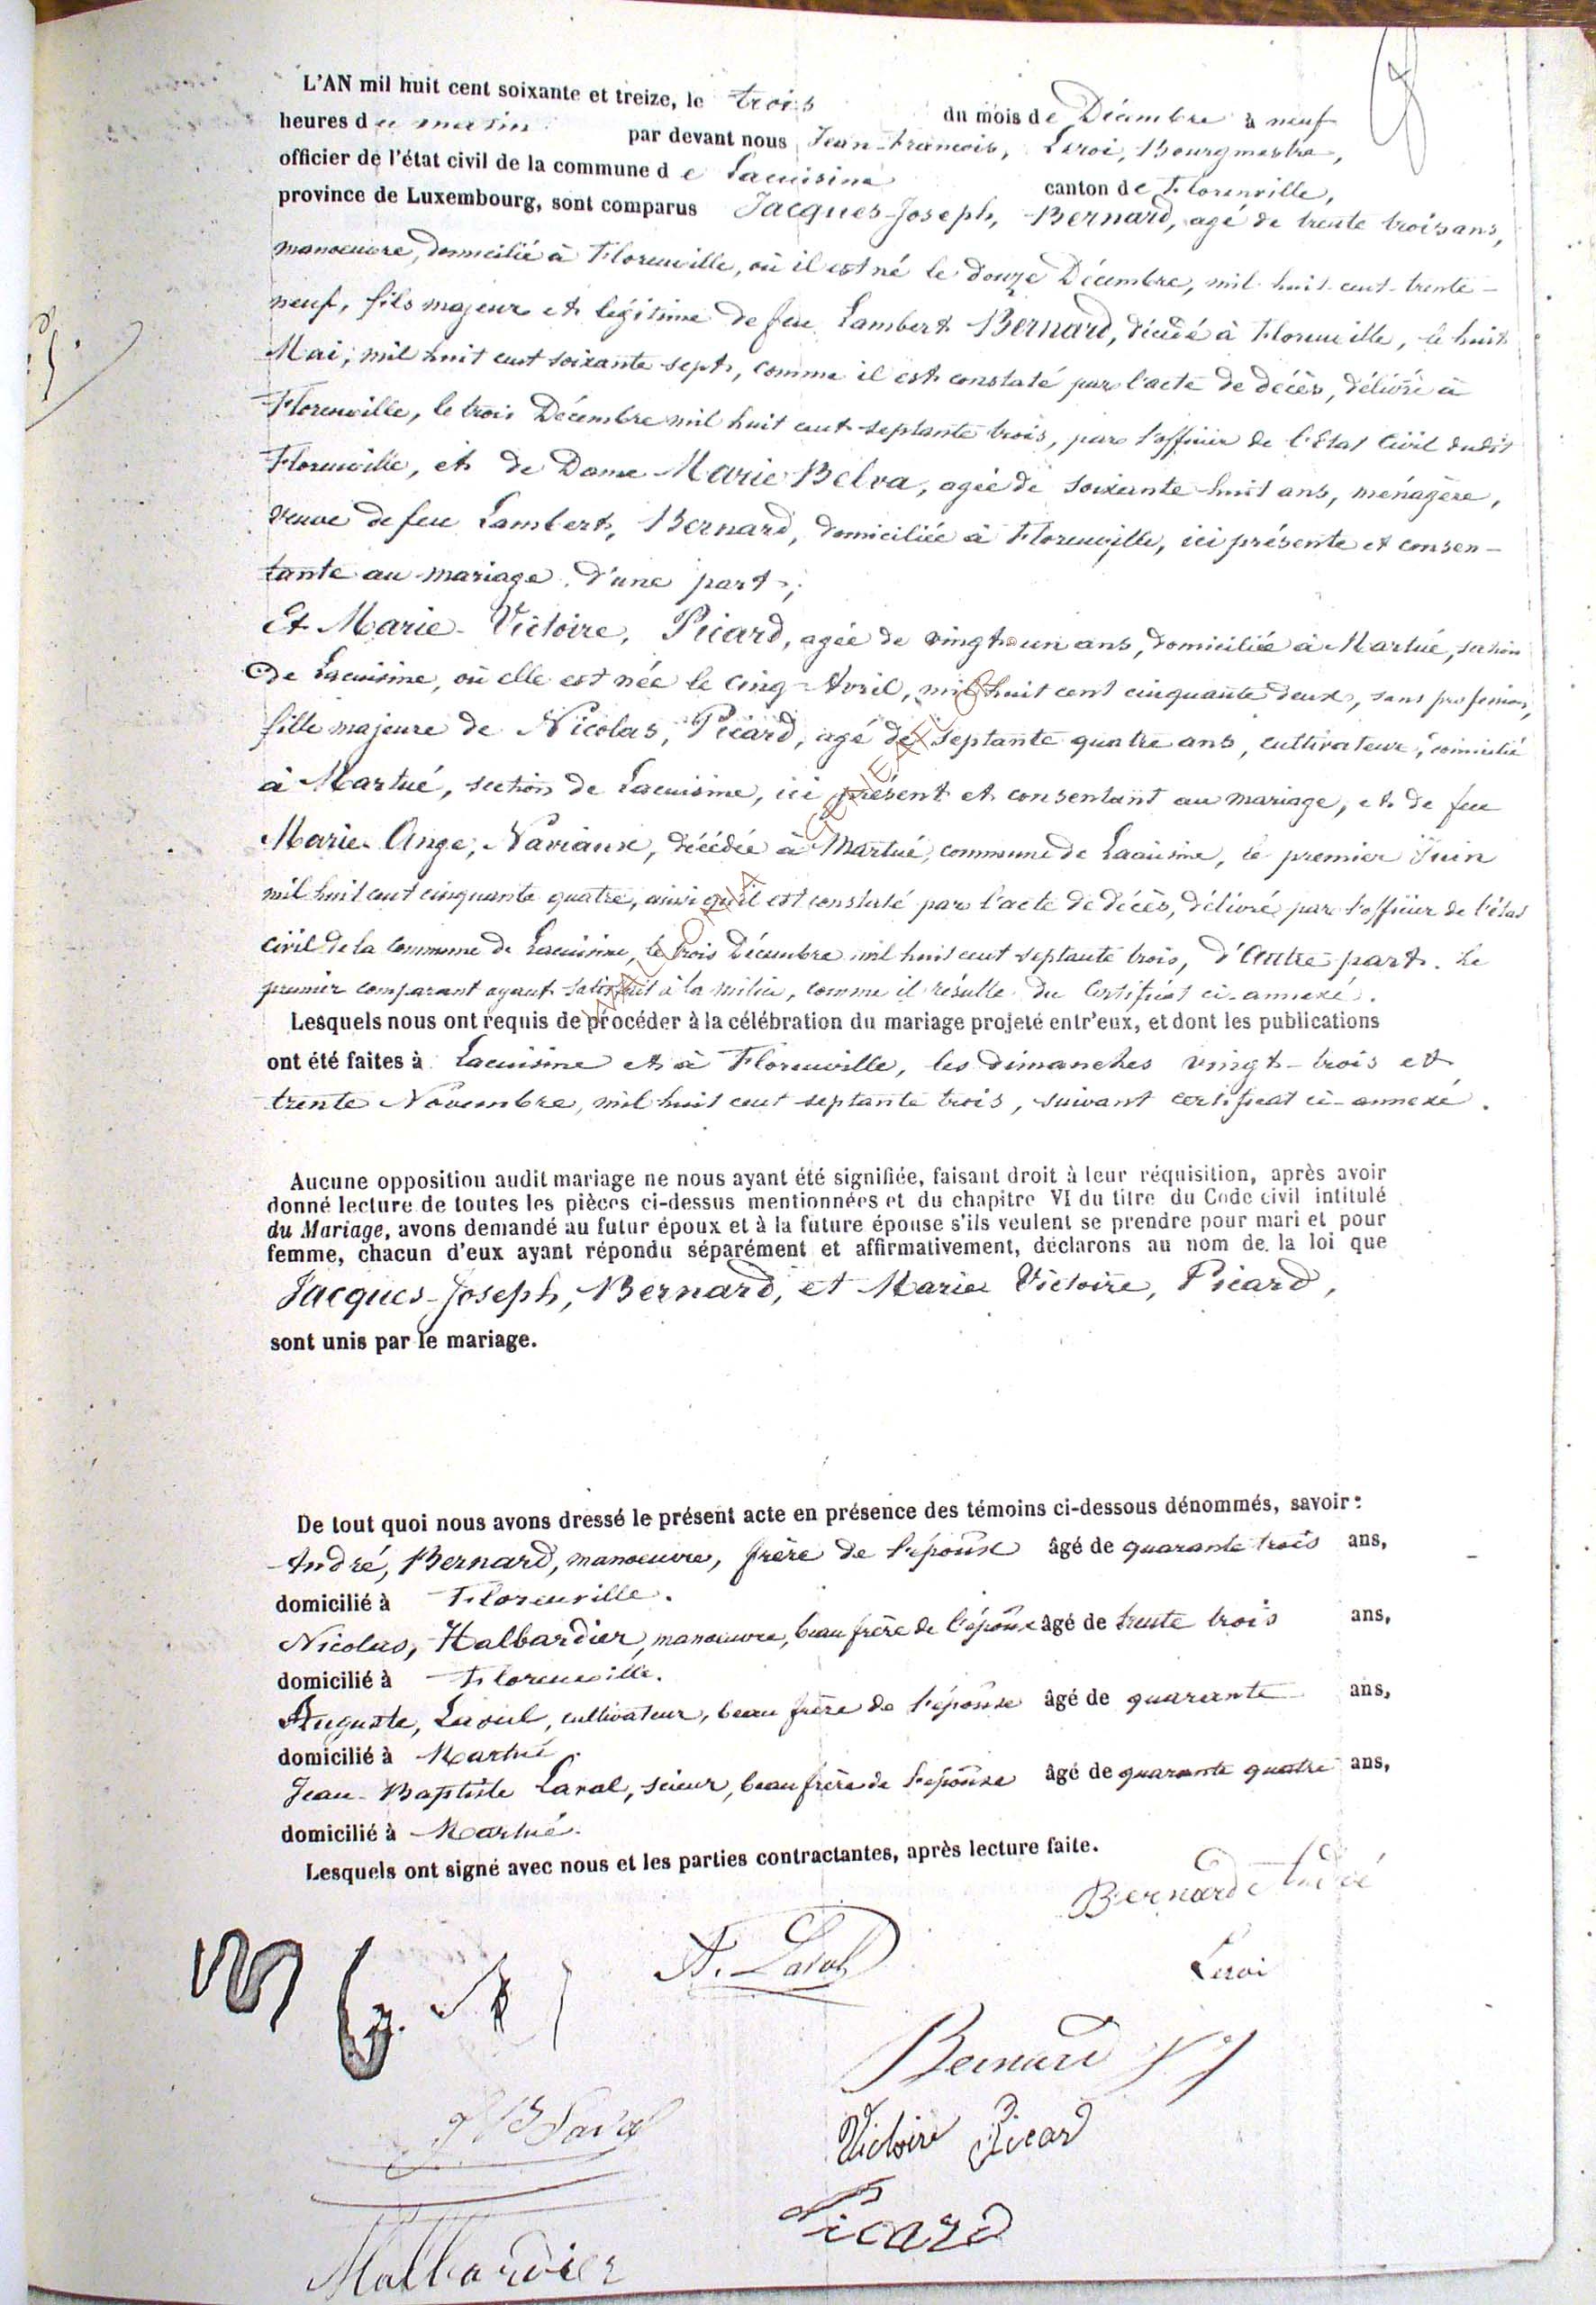 L'AN mil huit cent soixante et treize, le trois du mois de Décembre à neuf
heures du matin par devant nous Jean-François, Leroi, Bourgmestre,
officier de l'état civil de la commune de Lacuisine canton de Florenville,
province de Luxembourg, sont comparus Jacques-Joseph, Bernard, agé de trente trois ans,
manoeuvre, domicilié à Florenville, où il est né le douze Décembre, mil huit cent trente-
neuf, fils majeur et légitime de feu Lambert Bernard, décédé à Florenville, le huit
Mai, mil huit cent soixante sept, comme il est constaté par l'acte de décès, délivré à
Florenville, le trois Décembre mil huit cent septante trois, par l'officier de l'Etat Civil dudit
Florenville, et de Dame Marie Belva, agée de soixante-huit ans, ménagère,
veuve de feu Lambert, Bernard, domiciliée à Florenville, ici présente et consen-
tante au mariage d'une part;
Et Marie-Victoire, Picard, agée de vingt-un ans, domiciliée à Martué, section
de Lacuisine, où elle est née le cinq Avril, mil huit cent cinquante deux, sans profession,
fille majeure de Nicolas, Picard, agé de septante quatre ans, cultivateur, domicilié
à Martué, section de Lacuisine, ici présent et consentant au mariage, et de feue
Marie-Ange, Naviaux, décédée à Martué, commune de Lacuisine, le premier Juin
mil huit cent cinquante quatre, ainsi qu'il est constaté par l'acte de décès, délivré par l'officier de l'état
civil de la commune de Lacuisine, le trois Décembre mil huit cent septante trois, d'autre part. Le
premier comparant ayant satisfait à la milice, comme il résulte du certificat ci-annexé.
Lesquels nous ont requis de procéder à la célébration du mariage projeté entr'eux, et dont les publications
ont été faites à Lacuisine et à Florenville, les dimanches vingt-trois et
trente Novembre, mil huit cent septante trois, suivant certificat ci-annexé.
Aucune opposition audit mariage ne nous ayant été signifiée, faisant droit à leur réquisition, après avoir
donné lecture de toutes les pièces ci-dessus mentionnées et du chapitre VI du titre du Code civil intitulé
du Mariage, avons demandé au futur époux et à la future épouse s'ils veulent se prendre pour mari et pour
femme, chacun d'eux ayant répondu séparément et affirmativement, déclarons au nom de la loi que
Jacques-Joseph, Bernard, et Marie Victoire, Picard,
sont unis par le mariage.
De tout quoi nous avons dressé le présent acte en présence des témoins ci-dessous dénommés, savoir:
André, Bernard, manoeuvre, frère de l'époux âgé de quarante trois ans,
domicilié à Florenville.
Nicolas, Halbardier, manoeuvre, beau frère de l'époux âgé de trente trois ans,
domicilié à Florenville.
Auguste, Laval, cultivateur, beau frère de l'épouse âgé de quarante ans,
domicilié à Martué.
Jean-Baptiste Laval, scieur, beau frère de l'épouse âgé de quarante quatre ans,
domicilié à Martué.
Lesquels ont signé avec nous et les parties contractantes, après lecture faite.
Bernard André
A. Laval
Leroi
Bernard J J
J B Laval
Victoire Picard
Picard
Halbardier